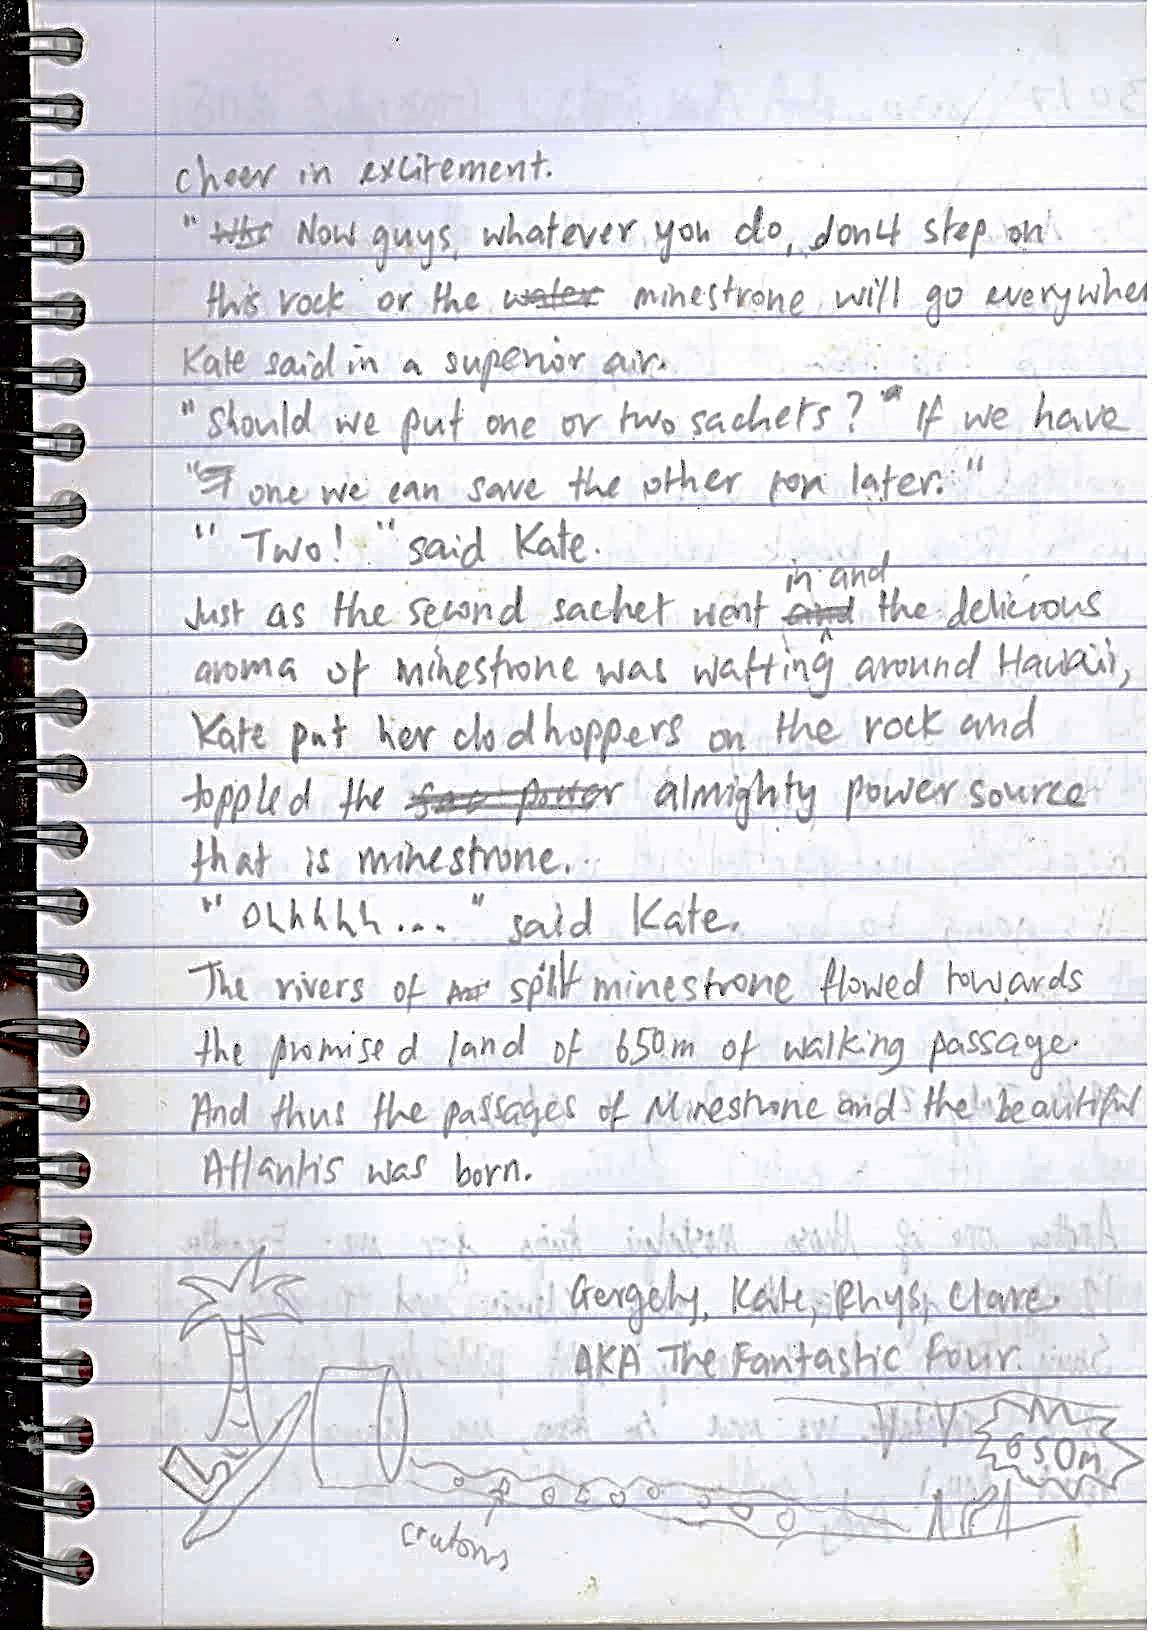 cheer in excitement.
" Now guys, whatever you do, don4 step on
this rock or the water minestrone will go everywher
Kate said in a superior air.
"Should we put one or two sachets?" If we have
" one we can save the other for later."
" Two! " said Kate.
in and
Just as the second sachet went and the delicious
aroma of minestrone was wafting around Hawaii,
Kate put her clodhoppers on the rock and
toppled the almighty power source
that is minestrone.
"Ohhhhh..." said Kate.
The rivers of spilt minestrone flowed towards
the promised land of 650m of walking passage.
And thus the passages of Minestrone and the beautiful
Atlantis was born.
Gergely, Kate, Rhys, Clare.
AKA The Fantastic four.
650m
crutons